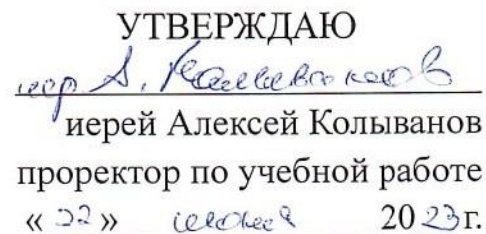 УТВЕРЖДАЮ
иер. А.
иерей Алексей Колыванов
проректор по учебной работе
« 22 » июня 2023г.